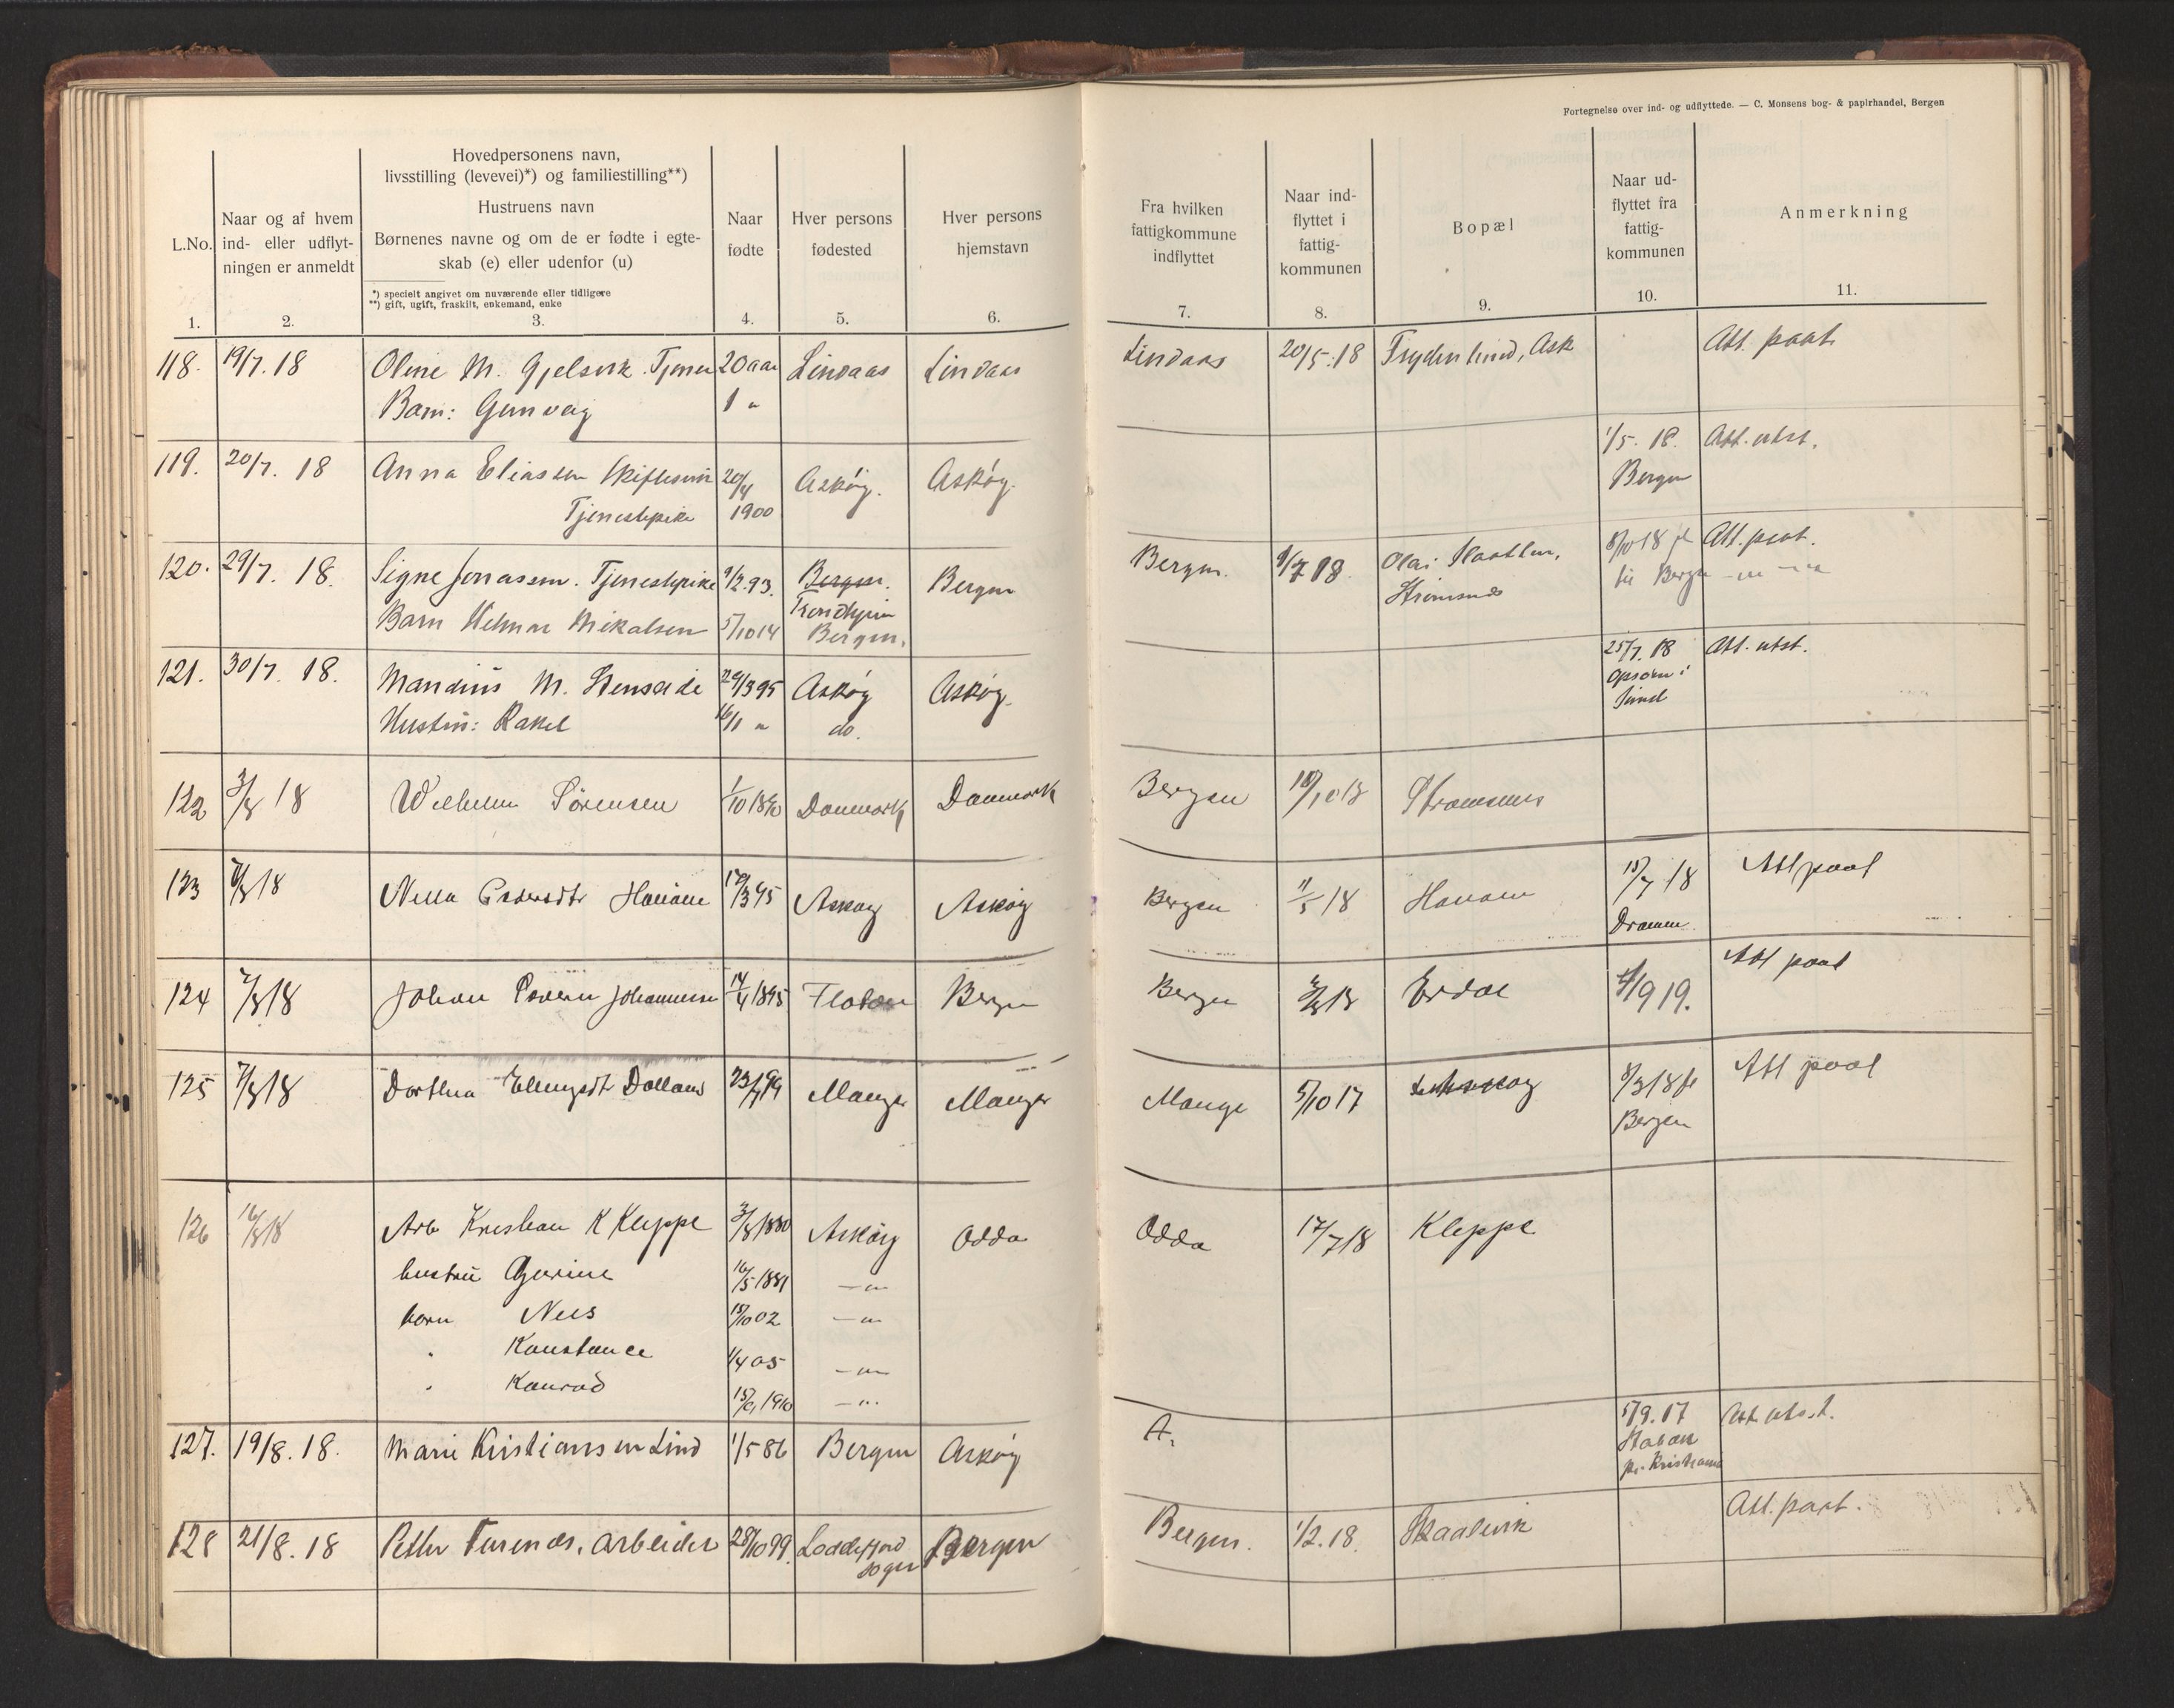 Fortegnelse over ind- og udflyttede. — C. Monsens bog- & papirhandel, Bergen
L.No.
1.
Naar og af hvem
ind- eller udflyt-
ningen er anmeldt
2.
Hovedpersonens navn,
livsstilling (levevei)*) og familiestilling**)
Hustruens navn
Børnenes navne og om de er fødte i egte-
skab (e) eller udenfor (u)
*) specielt angivet om nuværende eller tidligere
**) gift, ugift, fraskilt, enkemand, enke
3.
Naar
fødte
4.
Hver persons
fødested
5.
Hver persons
hjemstavn
6.
Fra hvilken
fattigkommune
indflyttet
7.
Naar ind-
flyttet i
fattig-
kommunen
8.
Bopæl
9.
Naar ud-
flyttet fra
fattig-
kommunen
10.
Anmerkning
11.
118. 19/7. 18 Oline M. Gjelsvik. Tjener 20 aar Lindaas Lindaas Lindaas 20/5.18 Frydenlund, Ask Att. paat.
Barn: Gunveig 1 "
119. 20/7. 18 Anna Eliassen 20/4 Askøy. Askøy. 1/5. 18. Att. utst.
Tjenestepike 1900 Bergen
120. 29/7. 18. Signe Jonassen. Tjenestepike 9/2.93. Bergen. Bergen Bergen. 9/7 18 Olai Att. paat.
Trondhjem Strømsnes til Bergen
Barn Helmar Mikalsen 5/10 14 Bergen.
121. 30/7. 18. Mandius M. Stenseide 29/3 95 Askøy Askøy. 25/7. 18 Att. utst.
Hustru: Rakel 16/1 " do.
122 3/8 18 Wilhelm Sørensen 1/10 1890 Danmark Danmark Bergen 18/10 18 Strømsnes
123 7/8 18 Petersdtr Hanøen 17/3 95 Askøy Askøy Bergen 11/5 18 Hanøen 15/7 18 Att paat
Drammen
124 7/8 18 Johan Johannessen 14/4 1895 Bergen Bergen Erdal 4/9 19. Att paat
125 7/8 18 Dorthea Dalland 23/7 99 Manger Manger Mange 5/10 17 8/3 18 Att paat
Bergen
126 16/8 18 Arb Kristian K Kleppe 3/8 1880 Askøy Odda Odda 17/7 18 Kleppe
hustru Gurine 16/5 1881 — " —
born Nils 15/10 02 — " —
" Konstance 1/4 05 — " —
" Konrad 1910 — " —
127. 19/8. 18. Marie Kristiansen Lind 1/5 86 Bergen Askøy A. 5/9. 17 Att. utst.
Stabæk
pr. Kristiania
128 21/8. 18 Petter Furenes, arbeider 28/10 99. Loddefjord Bergen Bergen. 1/2. 18. Skaalevik Att. paat.
sogn